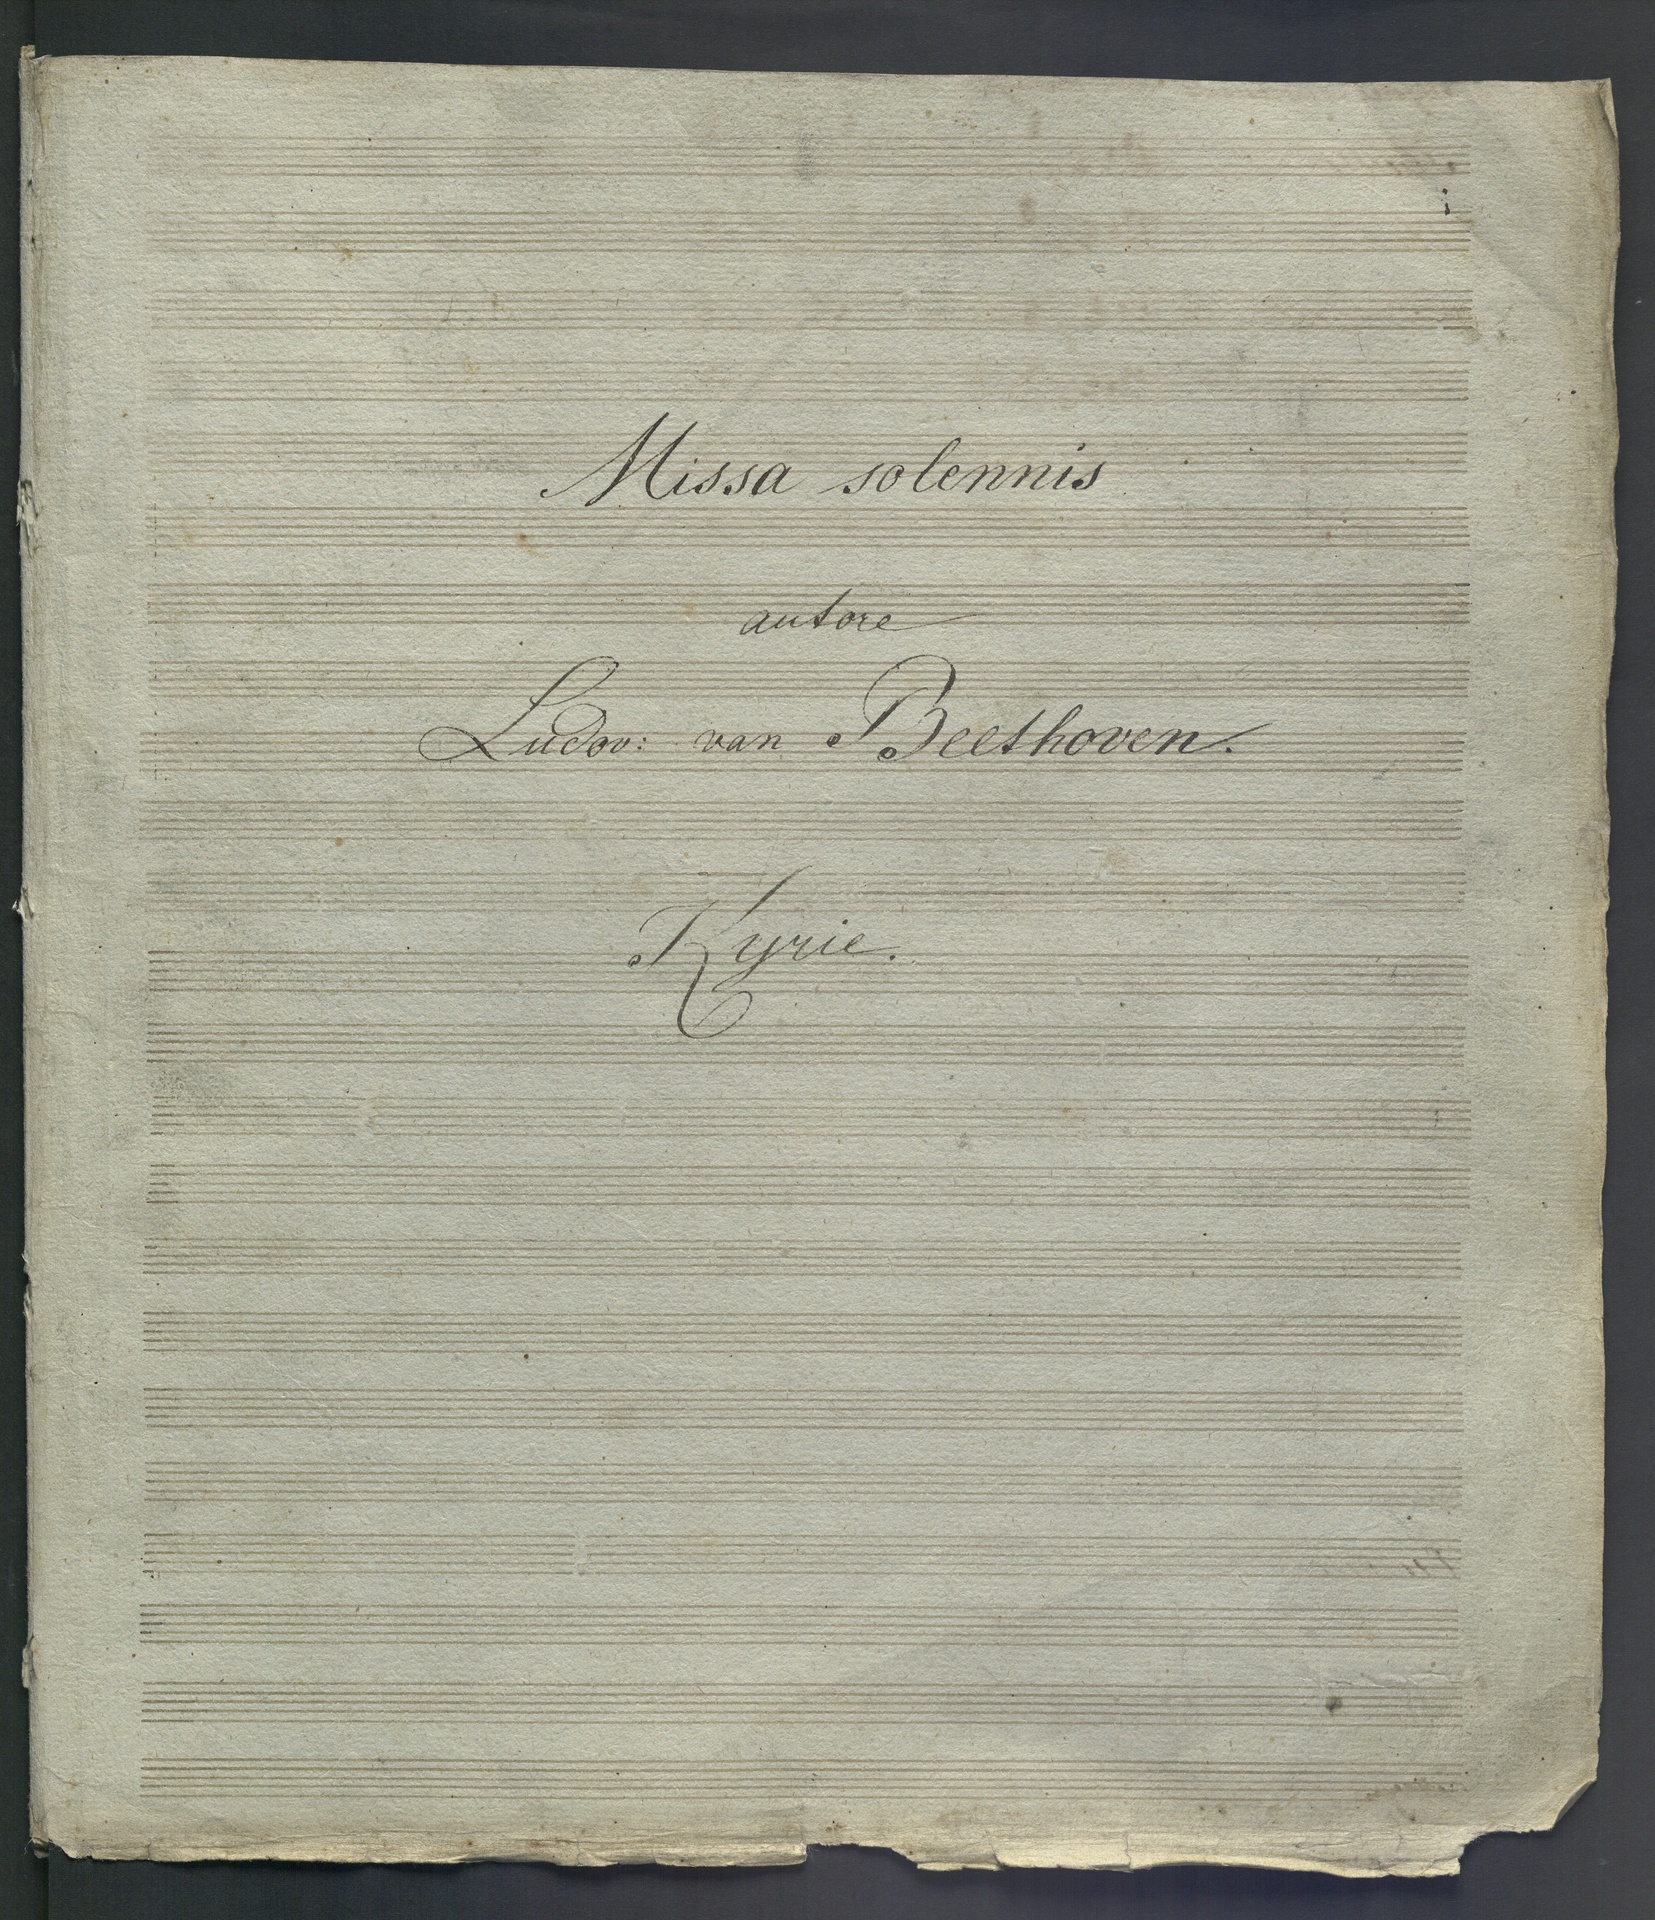 Missa solennis
autore
Ludov: van Beethoven.
Kyrie.